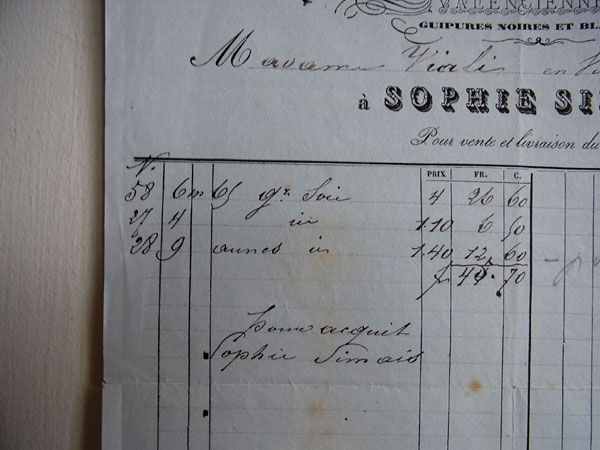 VALENCIENNE
GUIPURES NOIRES ET BL
Madame Viali en
à SOPHIE SI
Pour vente et livraison du
N.
PRIX FR. C.
58 6m 65 gr Soie 4 26 60
27 4 1.10 6 50
28 9 aunes 1.40 12 60
70
pour acquit
Sophie Simais